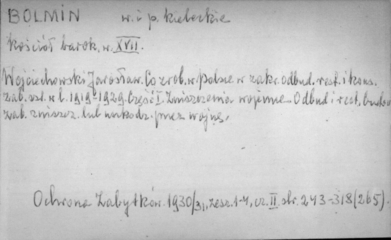 BOLMIN w. i p. kieleckie
Kościół barok. w. XVII.
Wojciechowski Jarosław. Co zrob. w Polsce w zakr. odbud. rest. i kons.
zab. szt. w l. 1919-1929. Część I. Zniszczenia wojenne. Odbud. i rest. budow.
zab. zniszcz. lub uszkodz. przez wojnę.
Ochrona Zabytków. 1930/31, zesz. 1-4, cz. II str. 243-318 (265).